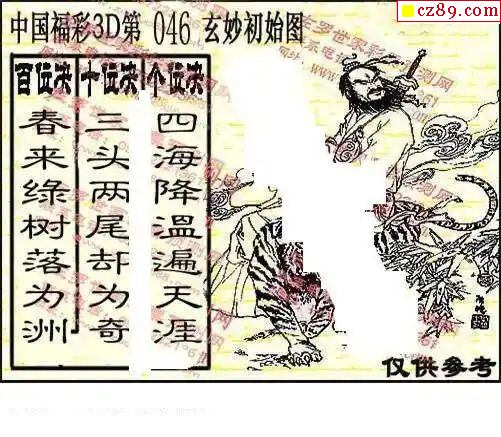 cz89.com
中国福彩3D第 046 玄妙初始图
百位决 十位决 个位决
春来绿树落为洲
三头两尾却为奇
四海降温遍天涯
仅供参考